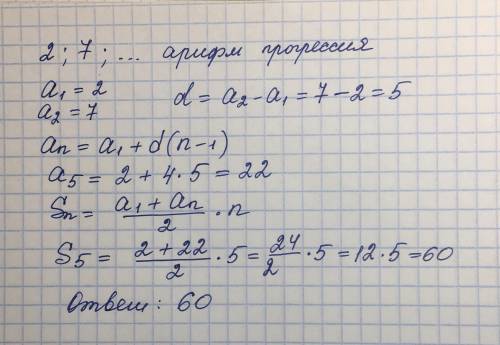 2 ; 7 ; ... арифм прогрессия
a₁ = 2
a₂ = 7
d = a₂ - a₁ = 7 - 2 = 5
aₙ = a₁ + d(n-1)
a₅ = 2 + 4·5 = 22
Sₙ = (a₁ + aₙ)/2 · n
S₅ = (2 + 22)/2 · 5 = 24/2 · 5 = 12·5 = 60
Ответ: 60